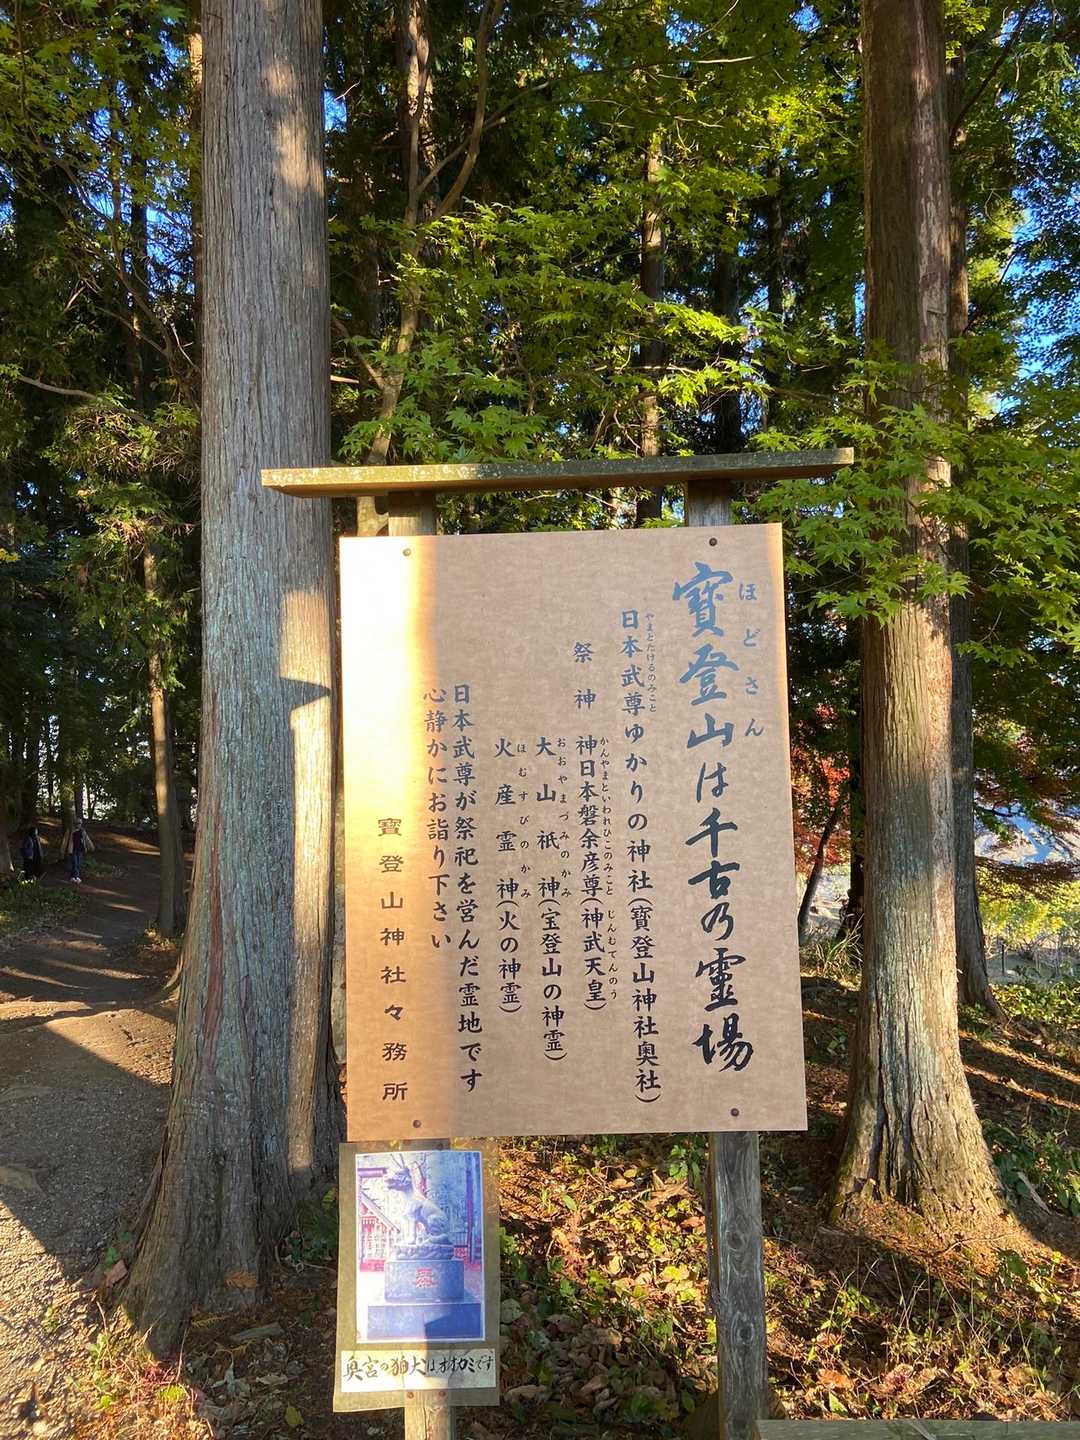 寶登山は千古乃靈場
ほどさん
日本武尊ゆかりの神社(寶登山神社奥社)
やまとたけるのみこと
祭神 神日本磐余彦尊(神武天皇)
かんやまといわれひこのみこと じんむてんのう
大山祇神(宝登山の神霊)
おおやまづみのかみ
火産霊神(火の神霊)
ほむすびのかみ
日本武尊が祭祀を営んだ霊地です
心静かにお詣り下さい
寶登山神社々務所
奥宮の狛犬はオオカミです